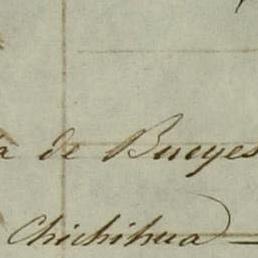 a de Bueyes
Chichihua